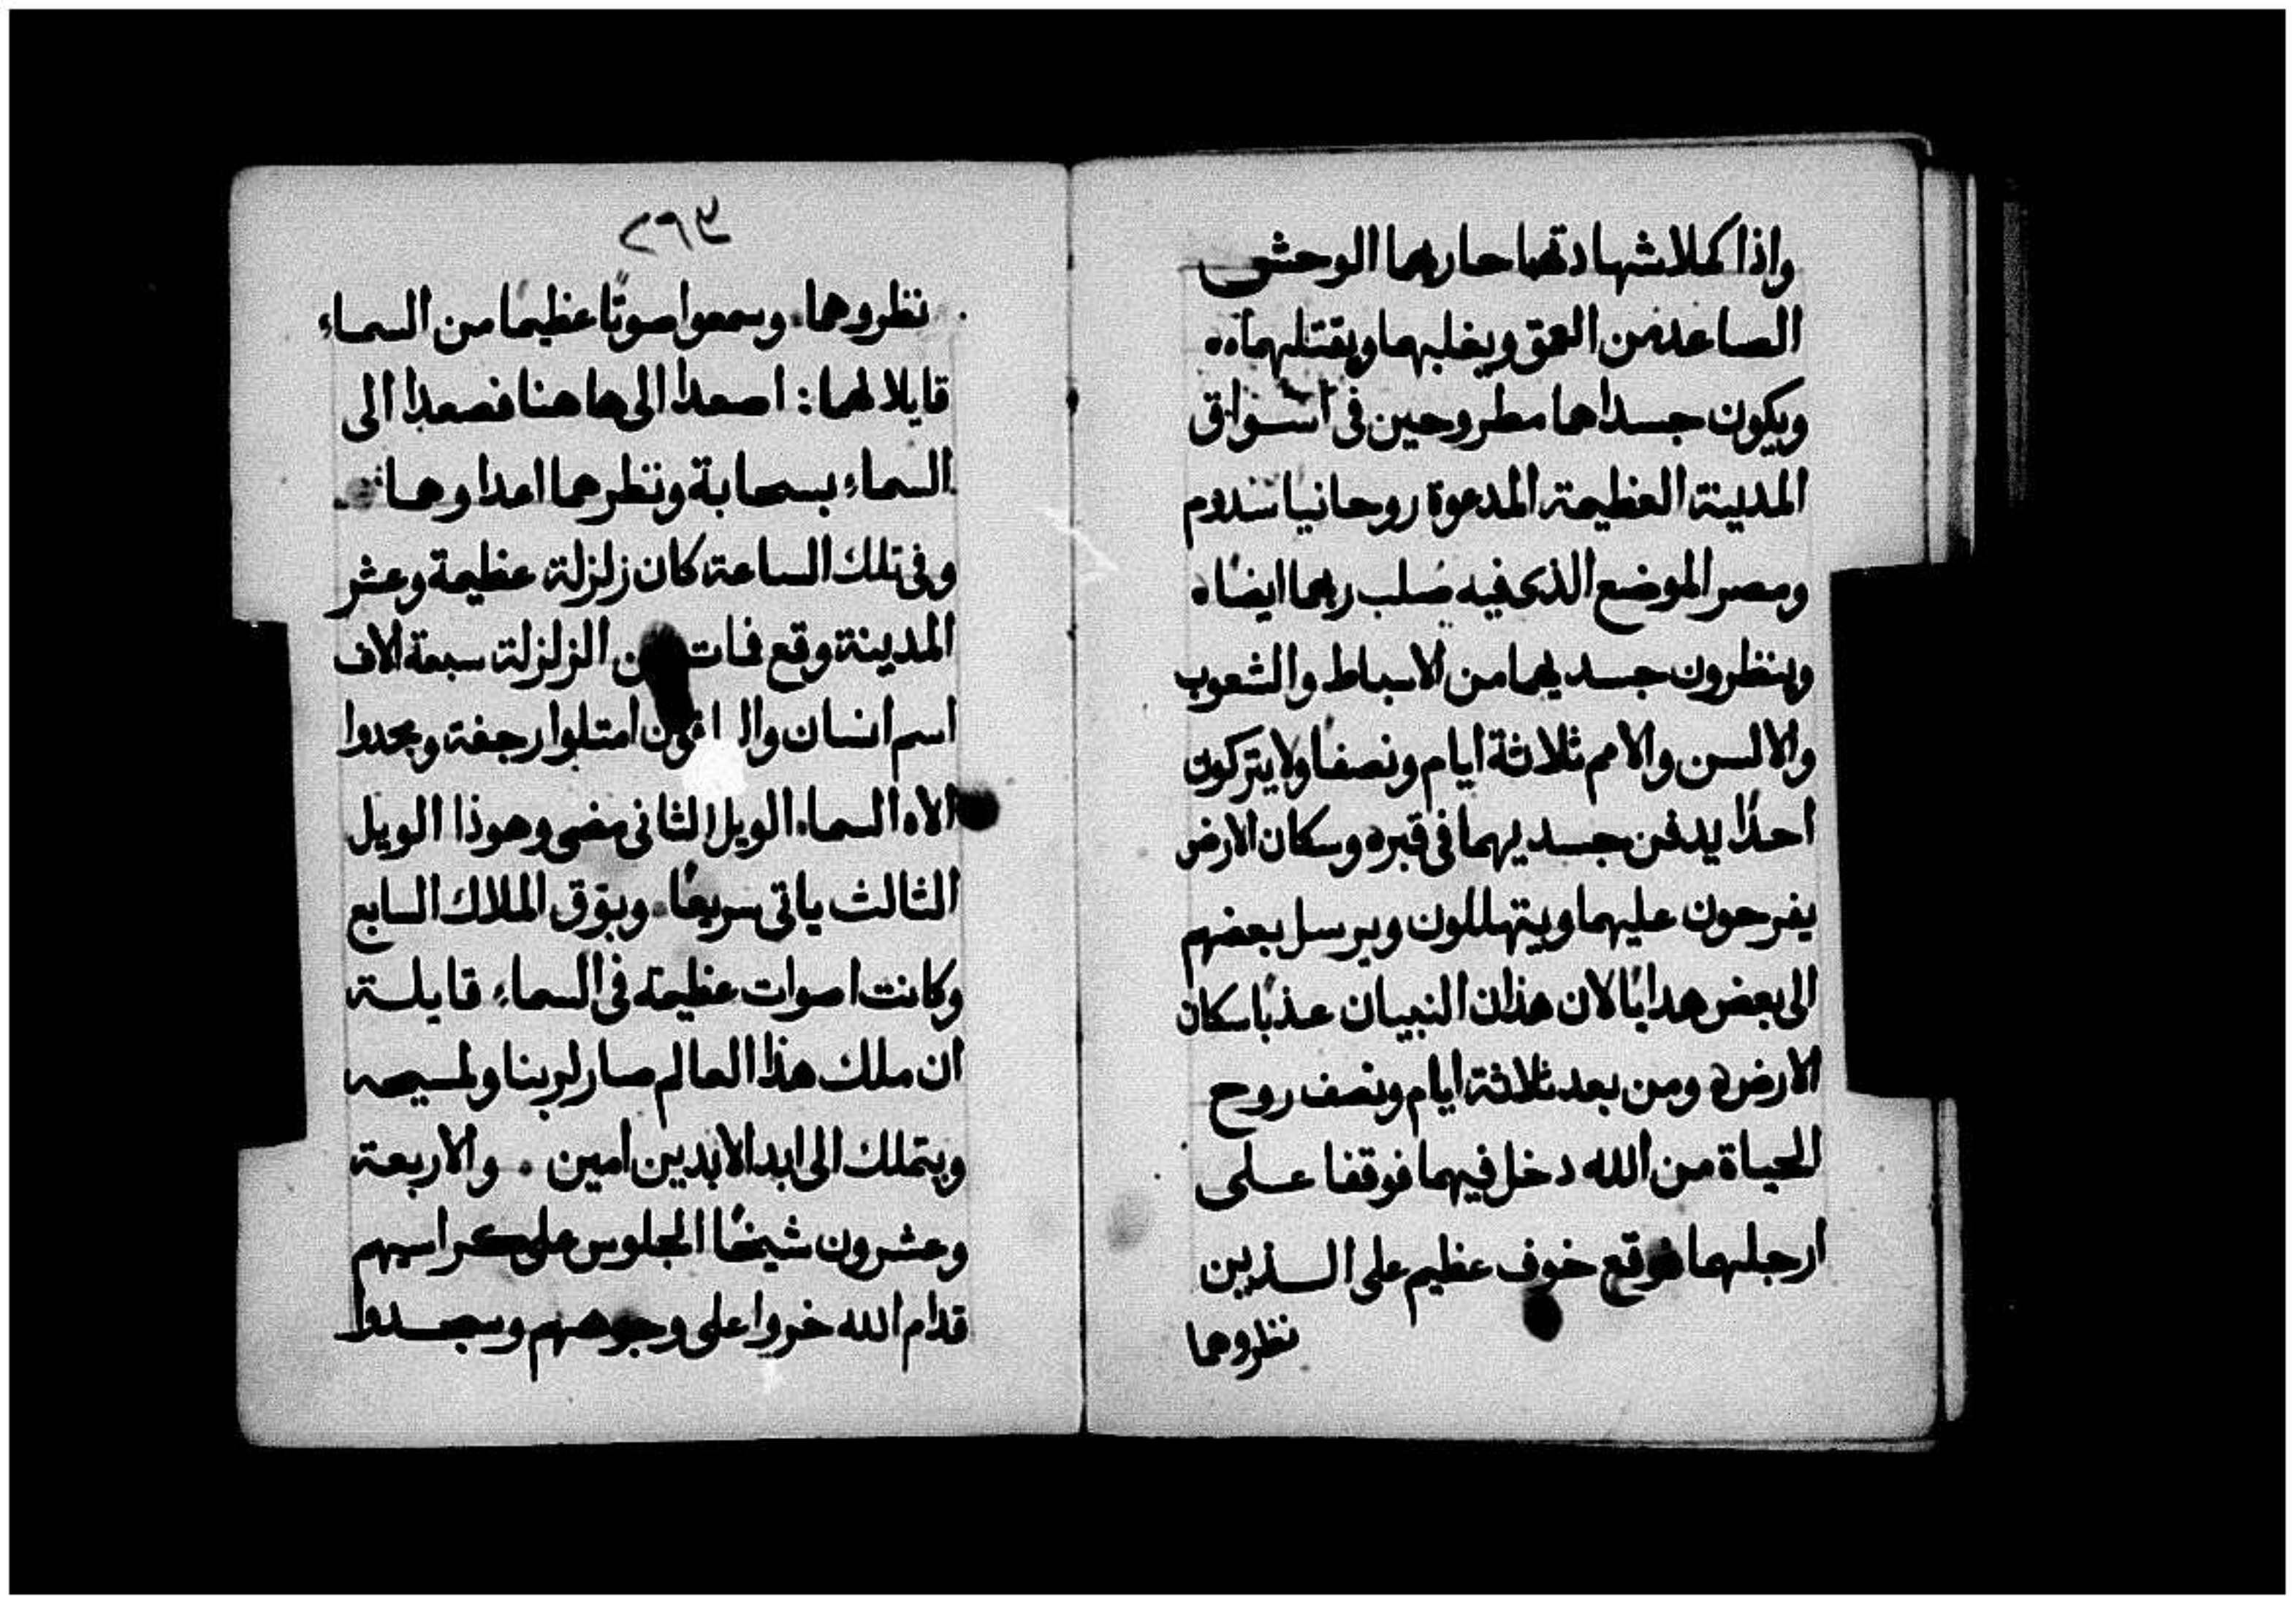 واذا كملا شهادتهما حاربهما الوحش
الصاعد من العمق ويغلبهما ويقتلهما
ويكون جسداهما مطروحين في اسواق
المدينة العظيمة المدعوة روحانيا سدوم
ومصر الموضع الذي فيه صلب ربهما ايضا
وينظرون جسديهما من الاسباط والشعوب
والالسن والامم ثلاثة ايام ونصفا ولا يتركون
احدا يدفن جسديهما في قبره وسكان الارض
يفرحون عليهما ويتهللون ويرسل بعضهم
الى بعض هدايا لان هذان النبيان عذبا سكان
الارض ومن بعد ثلاثة ايام ونصف روح
الحياة من الله دخل فيهما فوقفا على
ارجلهما فوقع خوف عظيم على الذين
نظروهما
٢٩٣
نظروهما. وسمعوا صوتا عظيما من السماء
قايلا لهما: اصعدا الى هاهنا فصعدا الى
السماء بسحابة ونظرهما اعداوهما
وفي تلك الساعة كان زلزلة عظيمة وعشر
المدينة وقع فمات الزلزلة سبعة الاف
اسم انسان امتلوا رجفة ومجدوا
الاه السماء. الويل الثاني مضى وهوذا الويل
الثالث ياتي سريعا. وبوق الملاك السابع
وكانت اصوات عظيمة في السماء قايلة
ان ملك هذا العالم صار لربنا ولمسيحه
ويتملك الى ابد الابدين امين . والاربعة
وعشرون شيخا الجلوس على كراسيهم
قدام الله خروا على وجوههم وسجدوا